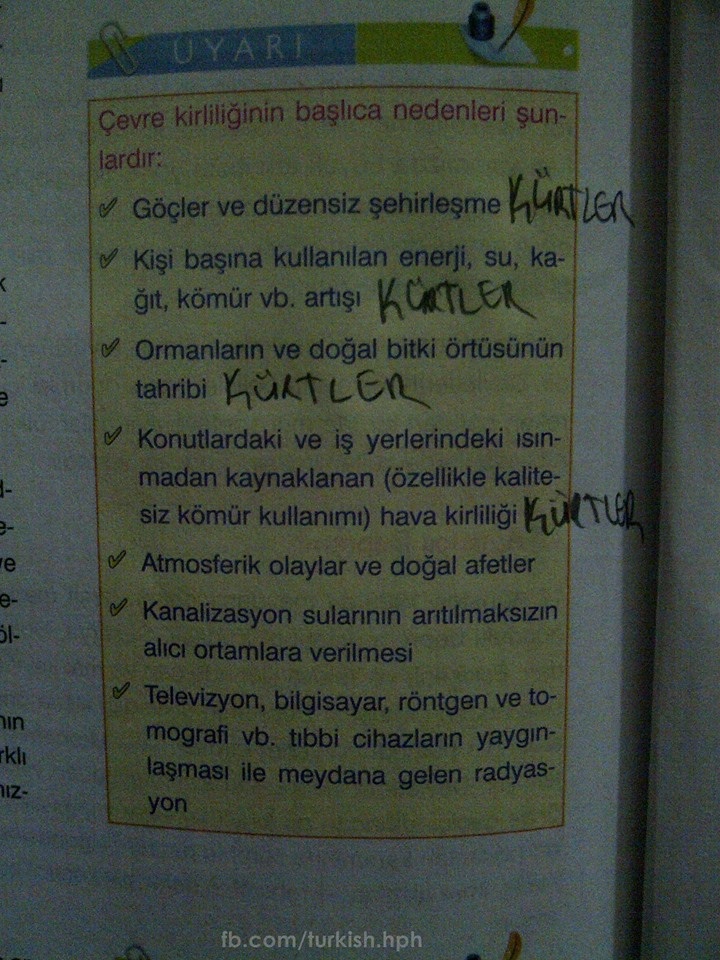 UYARI
Çevre kirliliğinin başlıca nedenleri şun-
lardır:
Göçler ve düzensiz şehirleşme KÜRTLER
Kişi başına kullanılan enerji, su, ka-
ğıt, kömür vb. artışı KÜRTLER
Ormanların ve doğal bitki örtüsünün
tahribi KÜRTLER
Konutlardaki ve iş yerlerindeki ısın-
madan kaynaklanan (özellikle kalite-
siz kömür kullanımı) hava kirliliği KÜRTLER
Atmosferik olaylar ve doğal afetler
Kanalizasyon sularının arıtılmaksızın
alıcı ortamlara verilmesi
Televizyon, bilgisayar, röntgen ve to-
mografi vb. tıbbi cihazların yaygın-
laşması ile meydana gelen radyas-
yon
fb.com/turkish.hph